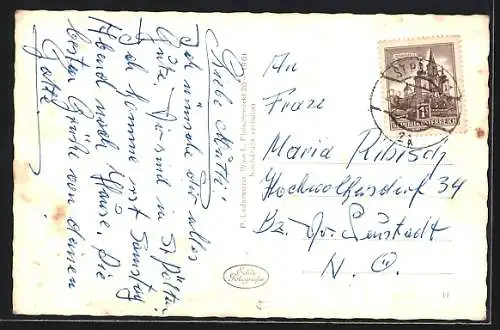 Liebe Mutti!
Ich wünsche Dir alles
Gute. Wir sind in St. Pölten.
Ich komme erst Samstag
Abend nach Hause. Die
besten Grüße von deinem
P. Ledermann, Wien I, Fleischmarkt 20
Echte
Fotografie
An
Frau
Maria Ribisch
Hochwolkersdorf 34
Bz. Wr. Neustadt
N. Ö.
REPUBLIK ÖSTERREICH